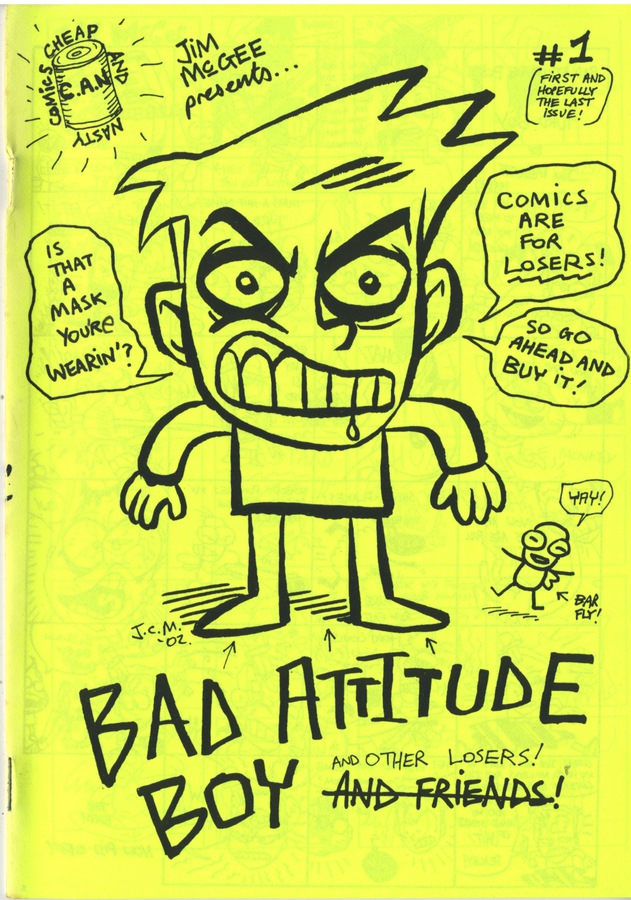 COMICS CHEAP AND NASTY
C.A.N.
JIM
McGEE
presents...
#1
FIRST AND
HOPEFULLY
THE LAST
ISSUE!
COMICS
ARE
FOR
LOSERS!
IS
THAT
A
MASK
YOU'RE
WEARIN'?
SO GO
AHEAD AND
BUY IT!
YAY!
BAR
FLY!
J.C.M.
'02.
BAD ATTITUDE
BOY
AND OTHER LOSERS!
AND FRIENDS!